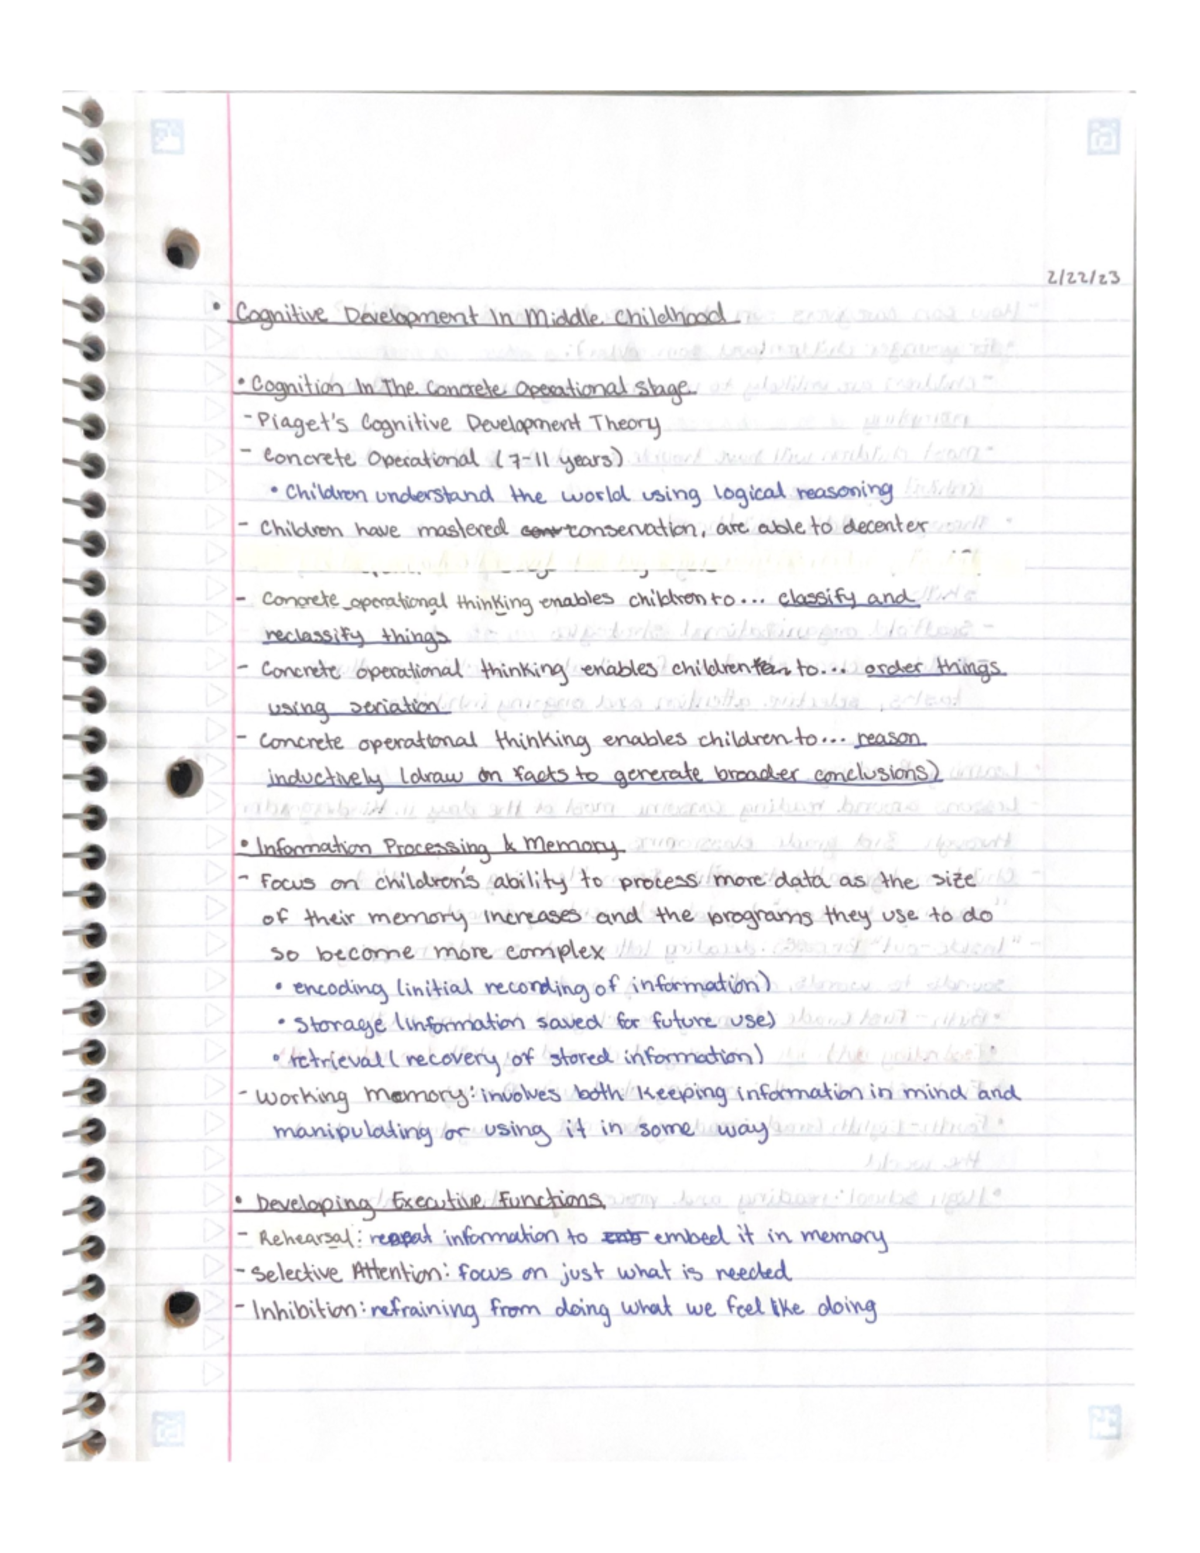 2/22/23
• Cognitive Development In Middle Childhood
• Cognition In The Concrete Operational Stage
- Piaget's Cognitive Development Theory
- Concrete Operational (7-11 years)
• Children understand the world using logical reasoning
- Children have mastered conservation, are able to decenter
- Concrete operational thinking enables children to... classify and
reclassify things
- Concrete operational thinking enables children to... order things
using seriation
- Concrete operational thinking enables children to... reason
inductively (draw on facts to generate broader conclusions)
• Information Processing & Memory
- Focus on children's ability to process more data as the size
of their memory increases and the programs they use to do
so become more complex
• encoding (initial recording of information)
• storage (information saved for future use)
• retrieval (recovery of stored information)
- Working Memory: involves both keeping information in mind and
manipulating or using it in some way
• Developing Executive Functions
- Rehearsal: repeat information to embed it in memory
- Selective Attention: focus on just what is needed
- Inhibition: refraining from doing what we feel like doing